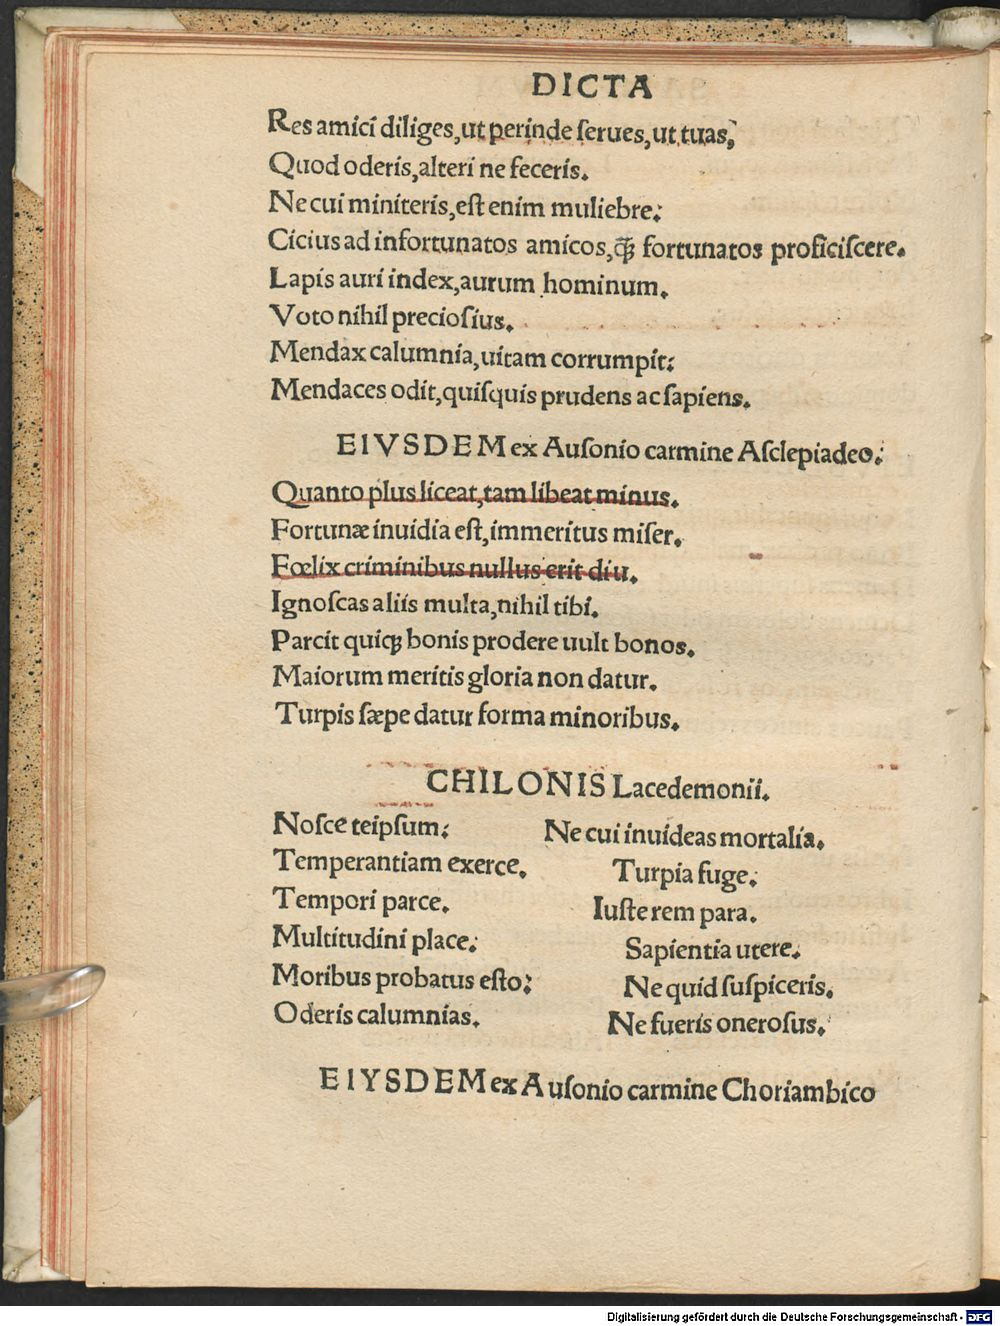 DICTA
Res amici diliges,ut perinde ſerues,ut tuas;
Quod oderis,alteri ne feceris.
Ne cui miniteris,eſt enim muliebre:
Cicius ad infortunatos amicos,q̃ꝫ fortunatos proficiſcere.
Lapis auri index,aurum hominum.
Voto nihil precioſius.
Mendax calumnia,uitam corrumpit:
Mendaces odit,quiſquis prudens ac ſapiens.
EIVSDEM ex Auſonio carmine Aſclepiadeo:
Quanto plus liceat,tam libeat minus.
Fortunæ inuidia eſt,immeritus miſer.
Fœlix criminibus nullus erit diu.
Ignoſcas aliis multa,nihil tibi.
Parcit quiqꝫ bonis prodere uult bonos.
Maiorum meritis gloria non datur.
Turpis ſæpe datur forma minoribus.
CHILONIS Lacedemonii.
Noſce teipſum: Ne cui inuideas mortalia.
Temperantiam exerce. Turpia fuge:
Tempori parce. Iuſte rem para.
Multitudini place: Sapientia utere:
Moribus probatus eſto: Ne quid ſuſpiceris.
Oderis calumnias. Ne fueris oneroſus.
EIYSDEM ex Auſonio carmine Choriambico
Digitalisierung gefördert durch die Deutsche Forschungsgemeinschaft - DFG